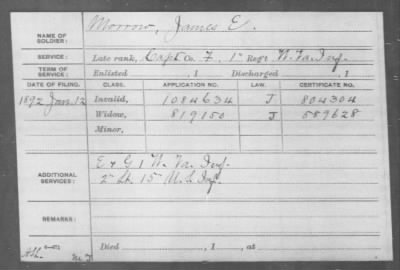 NAME OF SOLDIER: Morrow, James E.
SERVICE: Late rank, Capt Co. F, 1st Reg't W. Va. Inf.
TERM OF SERVICE: Enlisted , 1 Discharged , 1
DATE OF FILING. CLASS. APPLICATION NO. LAW. CERTIFICATE NO.
1892 Jan. 12 Invalid, 1084634 J 804304
Widow, 819150 J 589628
Minor,
ADDITIONAL SERVICES: E & G 1 W. Va. Inf.
2" Lt. 15" U.S. Inf.
REMARKS:
Died , 1 , at
6—671